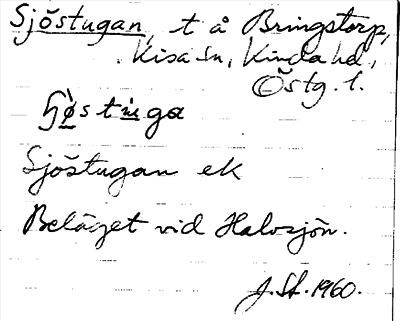 Sjöstugan, t å Bringstorp,
Kisa sn, Kinda hd,
Östg. l.
Sjöstugan ek
Beläget vid Halvsjön.
J. St. 1960.